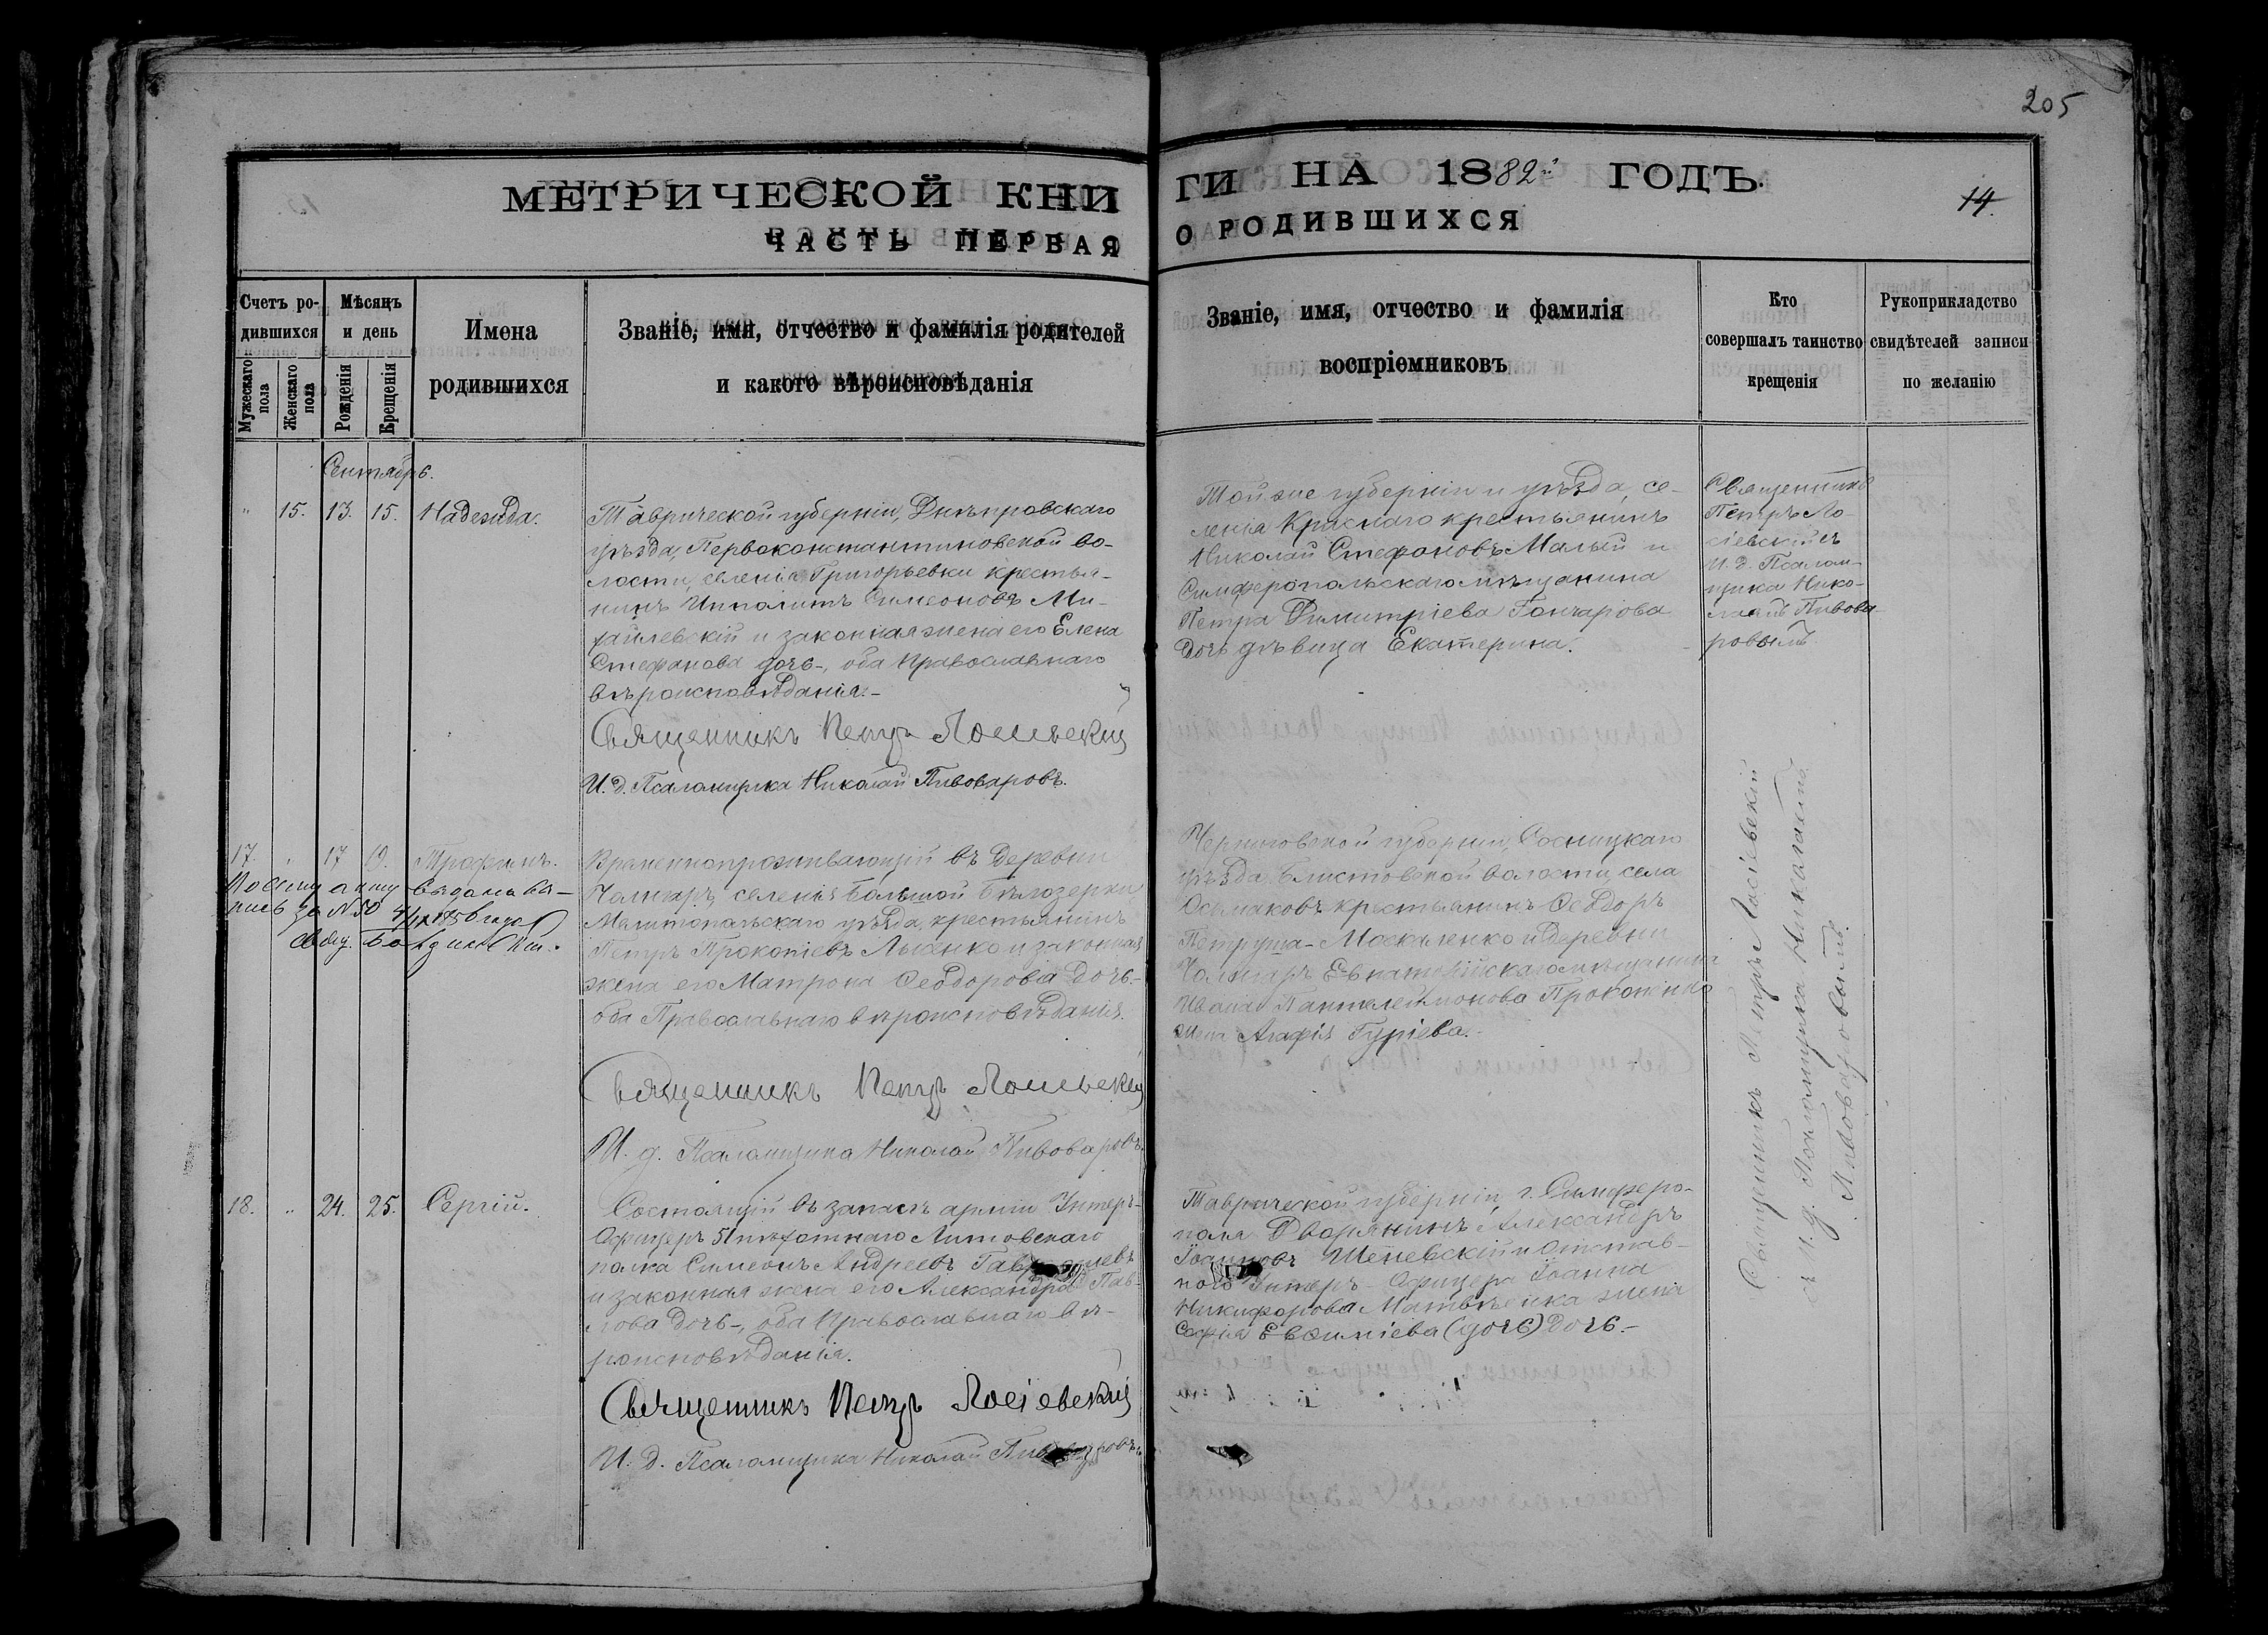 205
МЕТРИЧЕСКОЙ КНИ
ГИ НА 1882й ГОДЪ.
14.
ЧАСТЬ ПЕРВАЯ
О РОДИВШИХСЯ
Счетъ ро-
дившихся
Мужескаго
пола
Женскаго
пола
Мѣсяцъ
и день
Рожденія
Крещенія
Имена
родившихся
Званіе, имя, отчество и фамилія родителей
и какого вѣроисповѣданія
Званіе, имя, отчество и фамилія
воспріемниковъ
Кто
совершалъ таинство
крещенія
Рукоприкладство
свидѣтелей записи
по желанію
Сентябрь.
" 15. 13. 15. Надежда.
Таврической губерніи, Днѣпровскаго
уѣзда, Первоконстантиновской во-
лости, селенія Григорьевки крестья-
нинъ Ипполитъ Симеоновъ Ми-
хайлевскій и законная жена его Елена
Стефанова дочь-, оба Православнаго
вѣроисповѣданія.-
Священникъ Петръ Лосіевскій
И. д. Псаломщика Николай Пивоваровъ.
Той же губерніи и уѣзда, се-
ленія Краснаго крестьянинъ
Николай Стефановъ Малый и
Симферопольскаго мѣщанина
Петра Димитріева Гончарова
дочь дѣвица Екатерина.
Священникъ
Петръ Ло-
сіевскій съ
И. д. Псалом-
щика Нико-
лаемъ Пивова-
ровымъ.
17. " 17 19. Трофимъ.
По сему акту выдана вы-
пись за № 50
Временнопроживающій въ деревни
Чалгаръ, селенія Большой Бѣлозерки
Мелитопольскаго уѣзда, крестьянинъ
Петръ Прокопіевъ Лысенко и законная
жена его Матрона Ѳеодорова дочь.-
оба Православнаго вѣроисповѣданія.
Священникъ Петръ Лосіевскій
И. д. Псаломщика Николай Пивоваровъ.
Черниговской губерніи, Сосницкаго
уѣзда, Блистовской волости, села
Осьмаковъ крестьянинъ Ѳеодоръ
Петруша-Москаленко и деревни
Чалгаръ Евпаторійскаго мѣщанина
Ивана Пантелеймонова Прокопенко
жена Агафія Гуріева.-
Священникъ Петръ Лосіевскій
съ И. д. Псаломщика Николаемъ
Пивоваровымъ.
18. " 24. 25. Сергій.
Состоящій въ запасѣ арміи Унтеръ-
Офицеръ 51 пѣхотнаго Литовскаго
полка Симеонъ Андреевъ
и законная жена его Александра Пав-
лова дочь-, оба Православнаго вѣ-
роисповѣданія.
Священникъ Петръ Лосіевскій
И. д. Псаломщика Николай Пивоваровъ.
Таврической губерніи, г. Симферо-
поля Дворянинъ Александръ
Іоанновъ Шеневскій и Отстав-
ного Унтеръ-Офицера Іоанна
Никифорова Матвѣенка жена
Софія Евфиміева (дочь) дочь.-